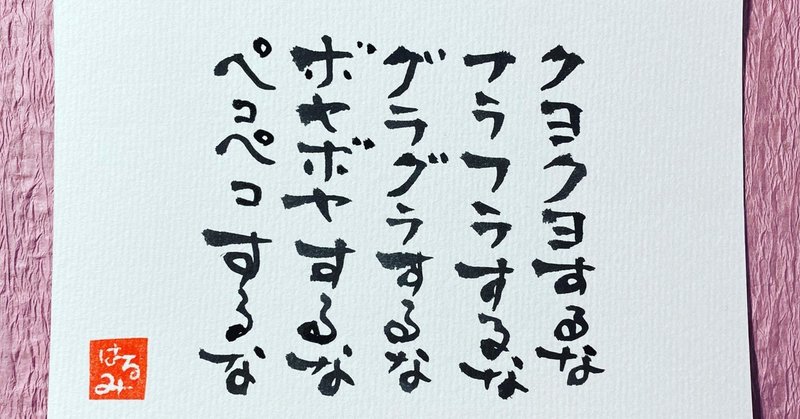 クヨクヨするな
フラフラするな
グラグラするな
ボヤボヤするな
ペコペコするな
はるみ